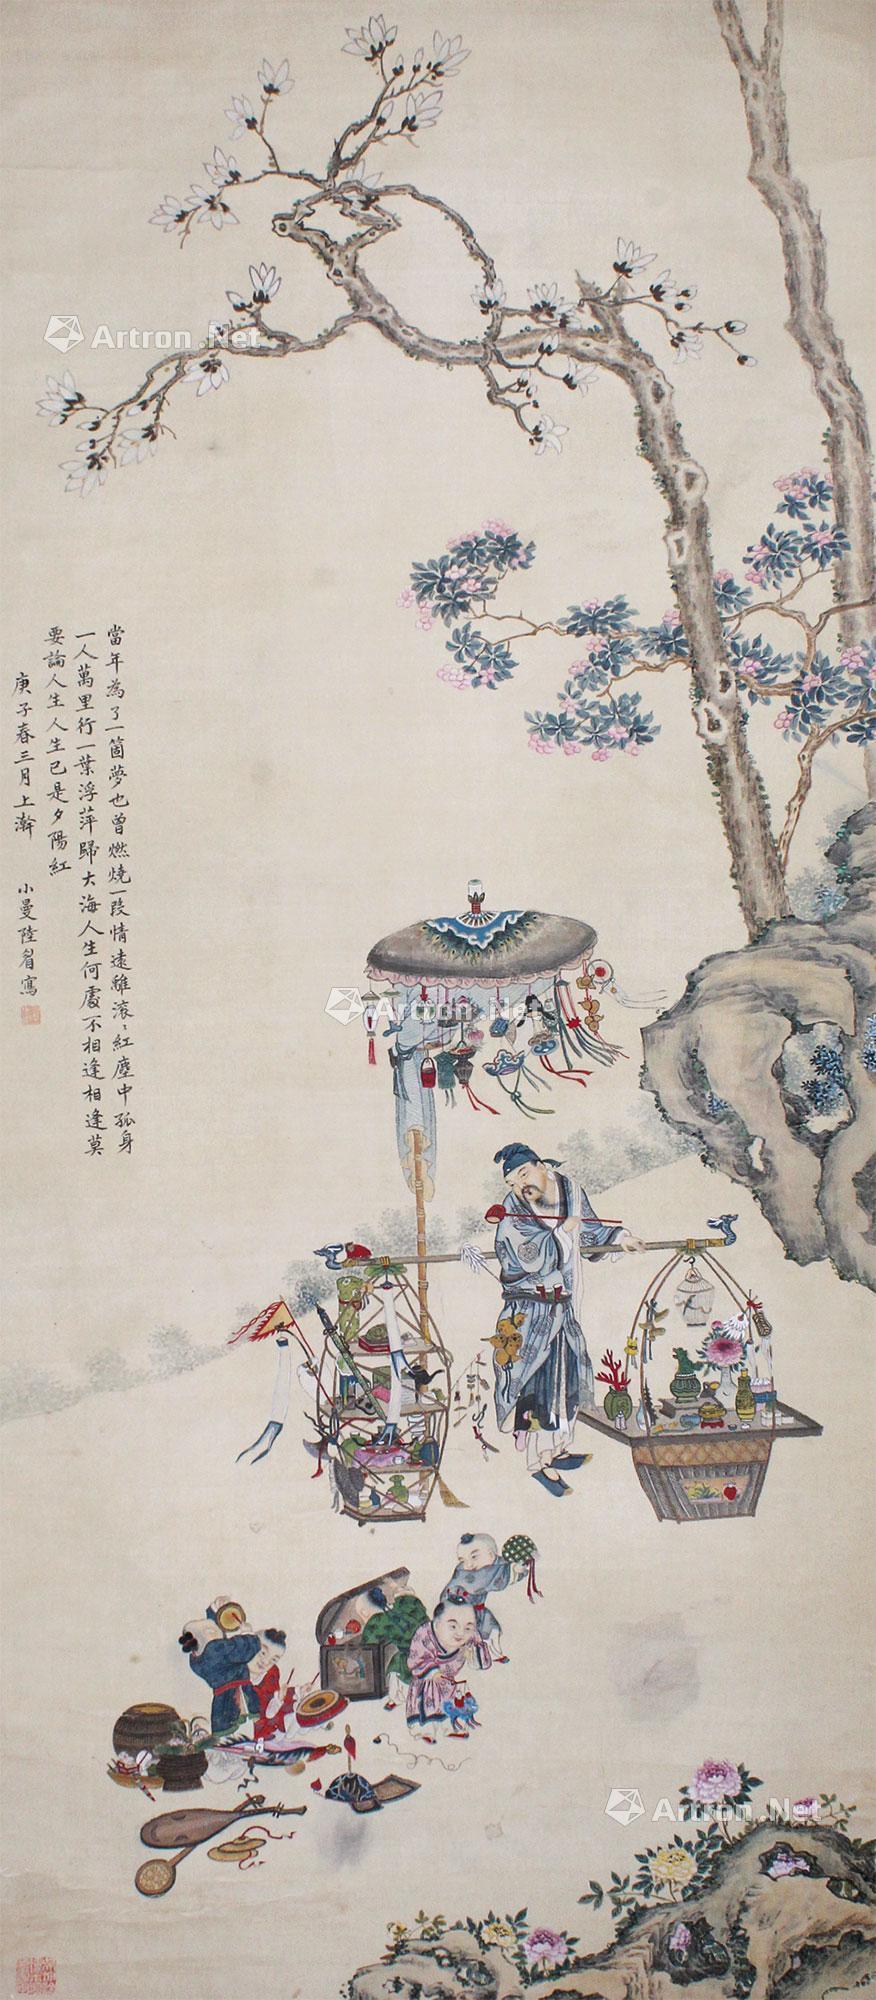 當年為了一箇夢也曾燃燒一段情遠離滾〻紅塵中孤身
一人萬里行一葉浮萍歸大海人生何處不相逢相逢莫
要論人生人生已是夕陽紅
庚子春三月上澣 小曼陸眉寫
Artron.Net
Artron.Net
Artron.Net